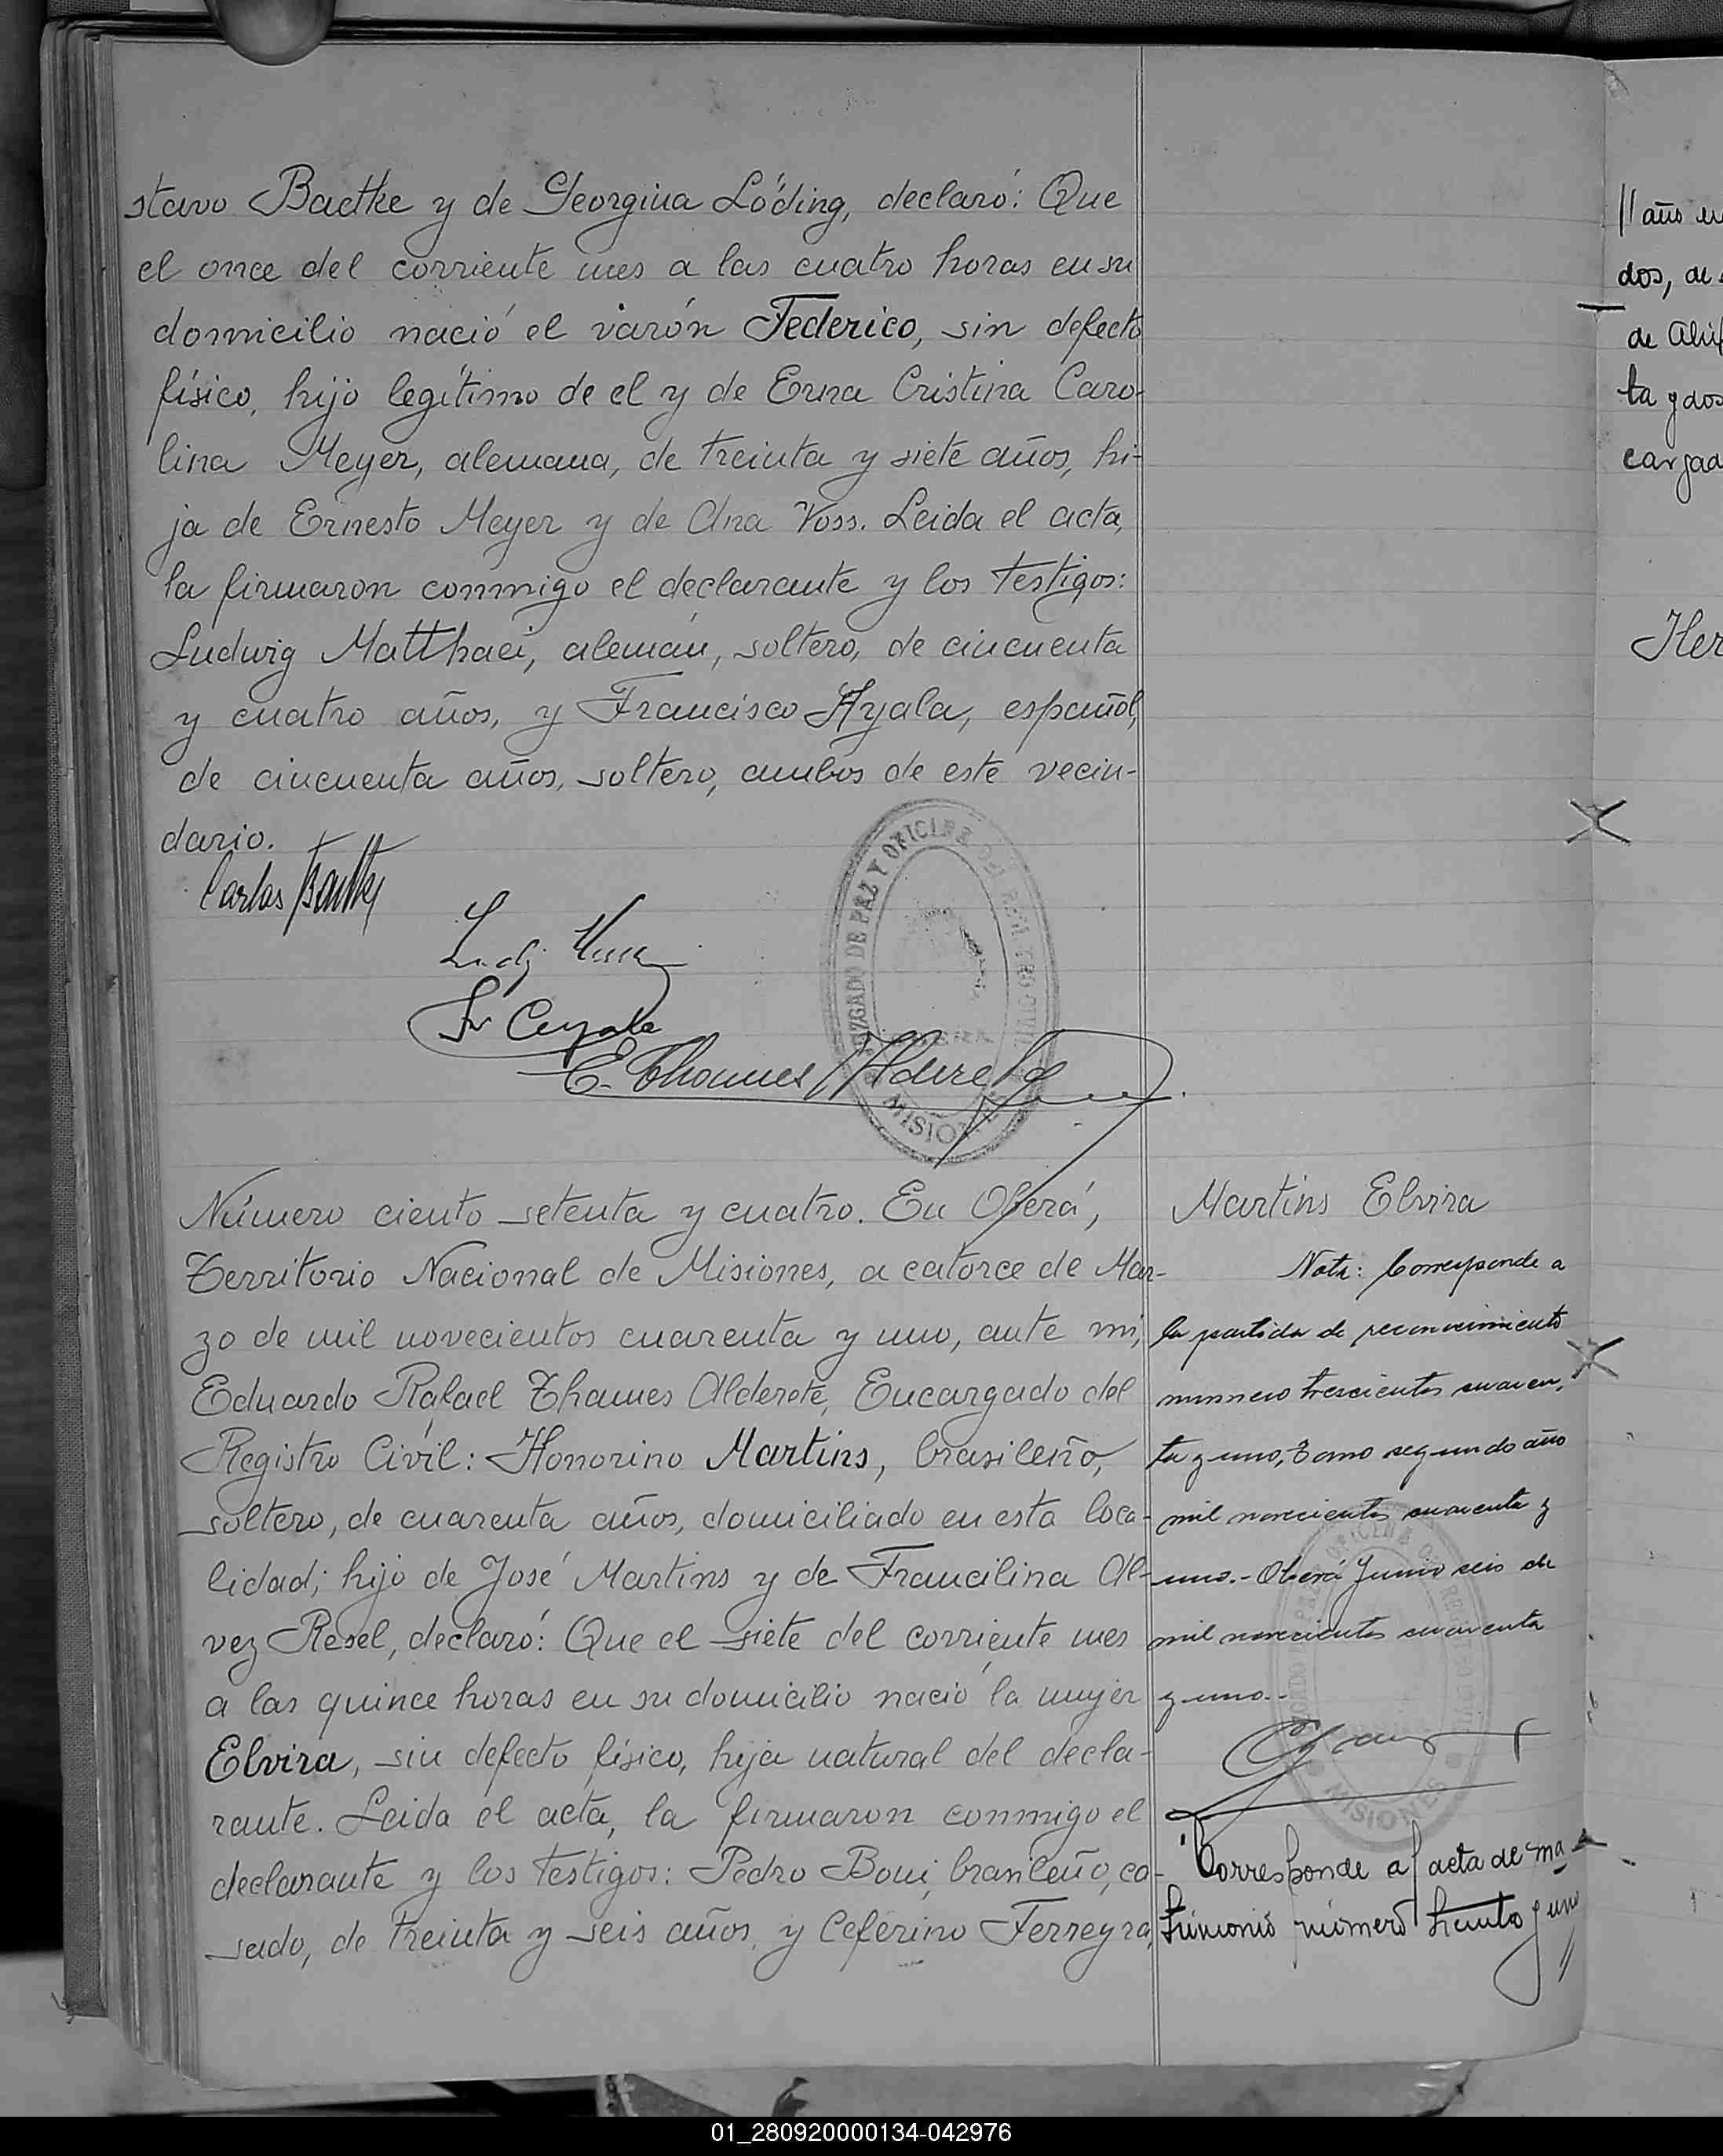 stavo Baetke y de Georgina Löding, declaró: Que
el once del corriente mes a las cuatro horas en su
domicilio nació el varón Federico, sin defecto
físico, hijo legítimo de el y de Erna Cristina Caro-
lina Meyer, alemana, de treinta y siete años, hi-
ja de Ernesto Meyer y de Ana Voss. Leida el acta,
la firmaron conmigo el declarante y los testigos:
Ludwig Matthaei, alemán, soltero, de cincuenta
y cuatro años, y Francisco Ayala, español,
de cincuenta años, soltero, ambos de este vecin-
dario.
Carlos Baetke
Fr Ayala
E. Thames Alderete
JUZGADO DE PAZ Y OFICINA DEL REGISTRO CIVIL
OBERA
MISIONES
Número ciento setenta y cuatro. En Oberá,
Territorio Nacional de Misiones, a catorce de Mar-
zo de mil novecientos cuarenta y uno, ante mi,
Eduardo Rafael Thames Alderete, Encargado del
Registro Civil: Honorino Martins, brasileño,
soltero, de cuarenta años, domiciliado en esta loca-
lidad; hijo de José Martins y de Francilina Al-
vez Resel, declaró: Que el siete del corriente mes
a las quince horas en su domicilio nació la mujer
Elvira, sin defecto físico, hija natural del decla-
rante. Leida el acta, la firmaron conmigo el
declarante y los testigos: Pedro Boni, brasileño, ca-
sado, de treinta y seis años, y Ceferino Ferreyra,
Martins Elvira
Nota: Corresponde a
la partida de reconocimiento
número trescientos cuaren,
ta y uno, Tomo segundo año
mil novecientos cuarenta y
uno.- Oberá Junio seis de
mil novecientos cuarenta
y uno.-
MISIONES
Corresponde al acta de ma
trimonio número treinta y uno
//
// año
dos, de
de
ta y dos
cargad
Her
01_280920000134-042976